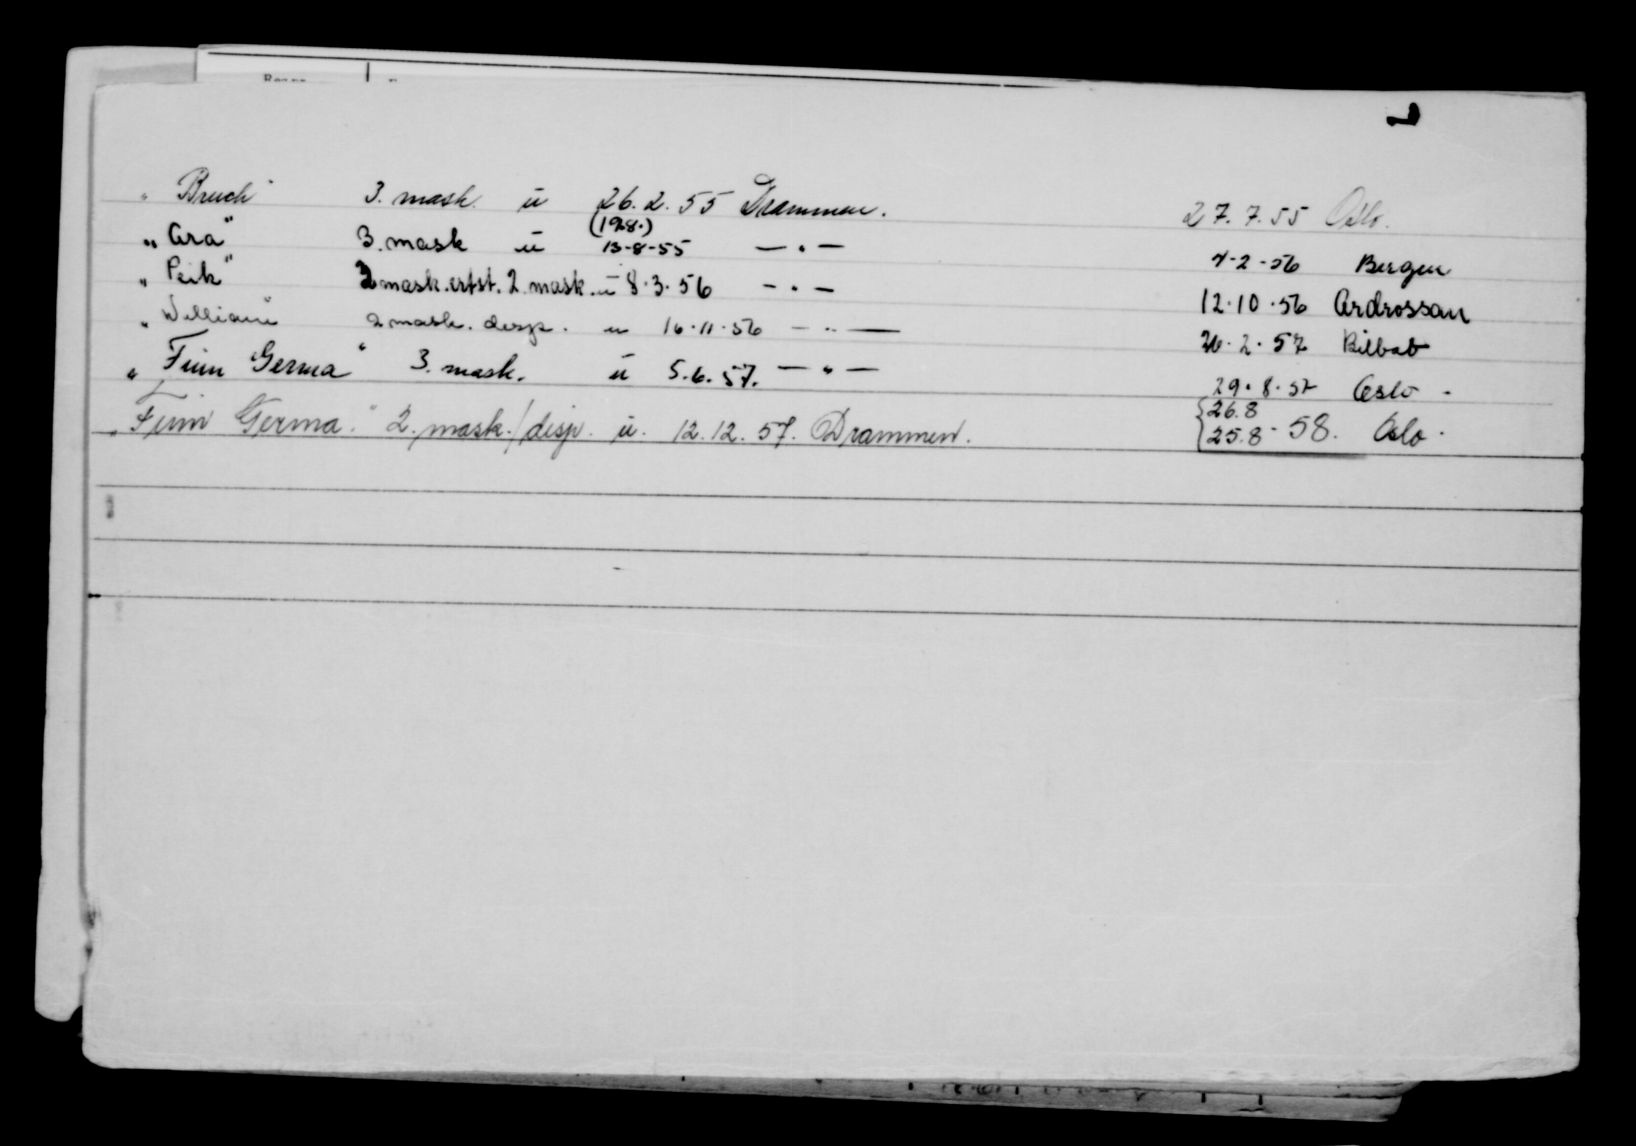 „ Bruch" 3. mask. u 26.2.55 Drammen. 27.7.55 Oslo.
(198.)
„ Ara" 3. mask u 13-8-55 — . — 7-2-56 Bergen
„ Peik" mask. ertst. 2. mask. u 8.3.56 — . — 12.10.56 Ardrossan
„ William 2 mask. disp. u 16.11.56 — „ — 26.2.57 Bilbao
„ Finn Germa" 3. mask. u 5.6.57. — „ — 29.8.57 Oslo -
„ Finn Germa." 2. mask./disp. u. 12.12.57. Drammen. {26.8 25.8 - 58. Oslo.